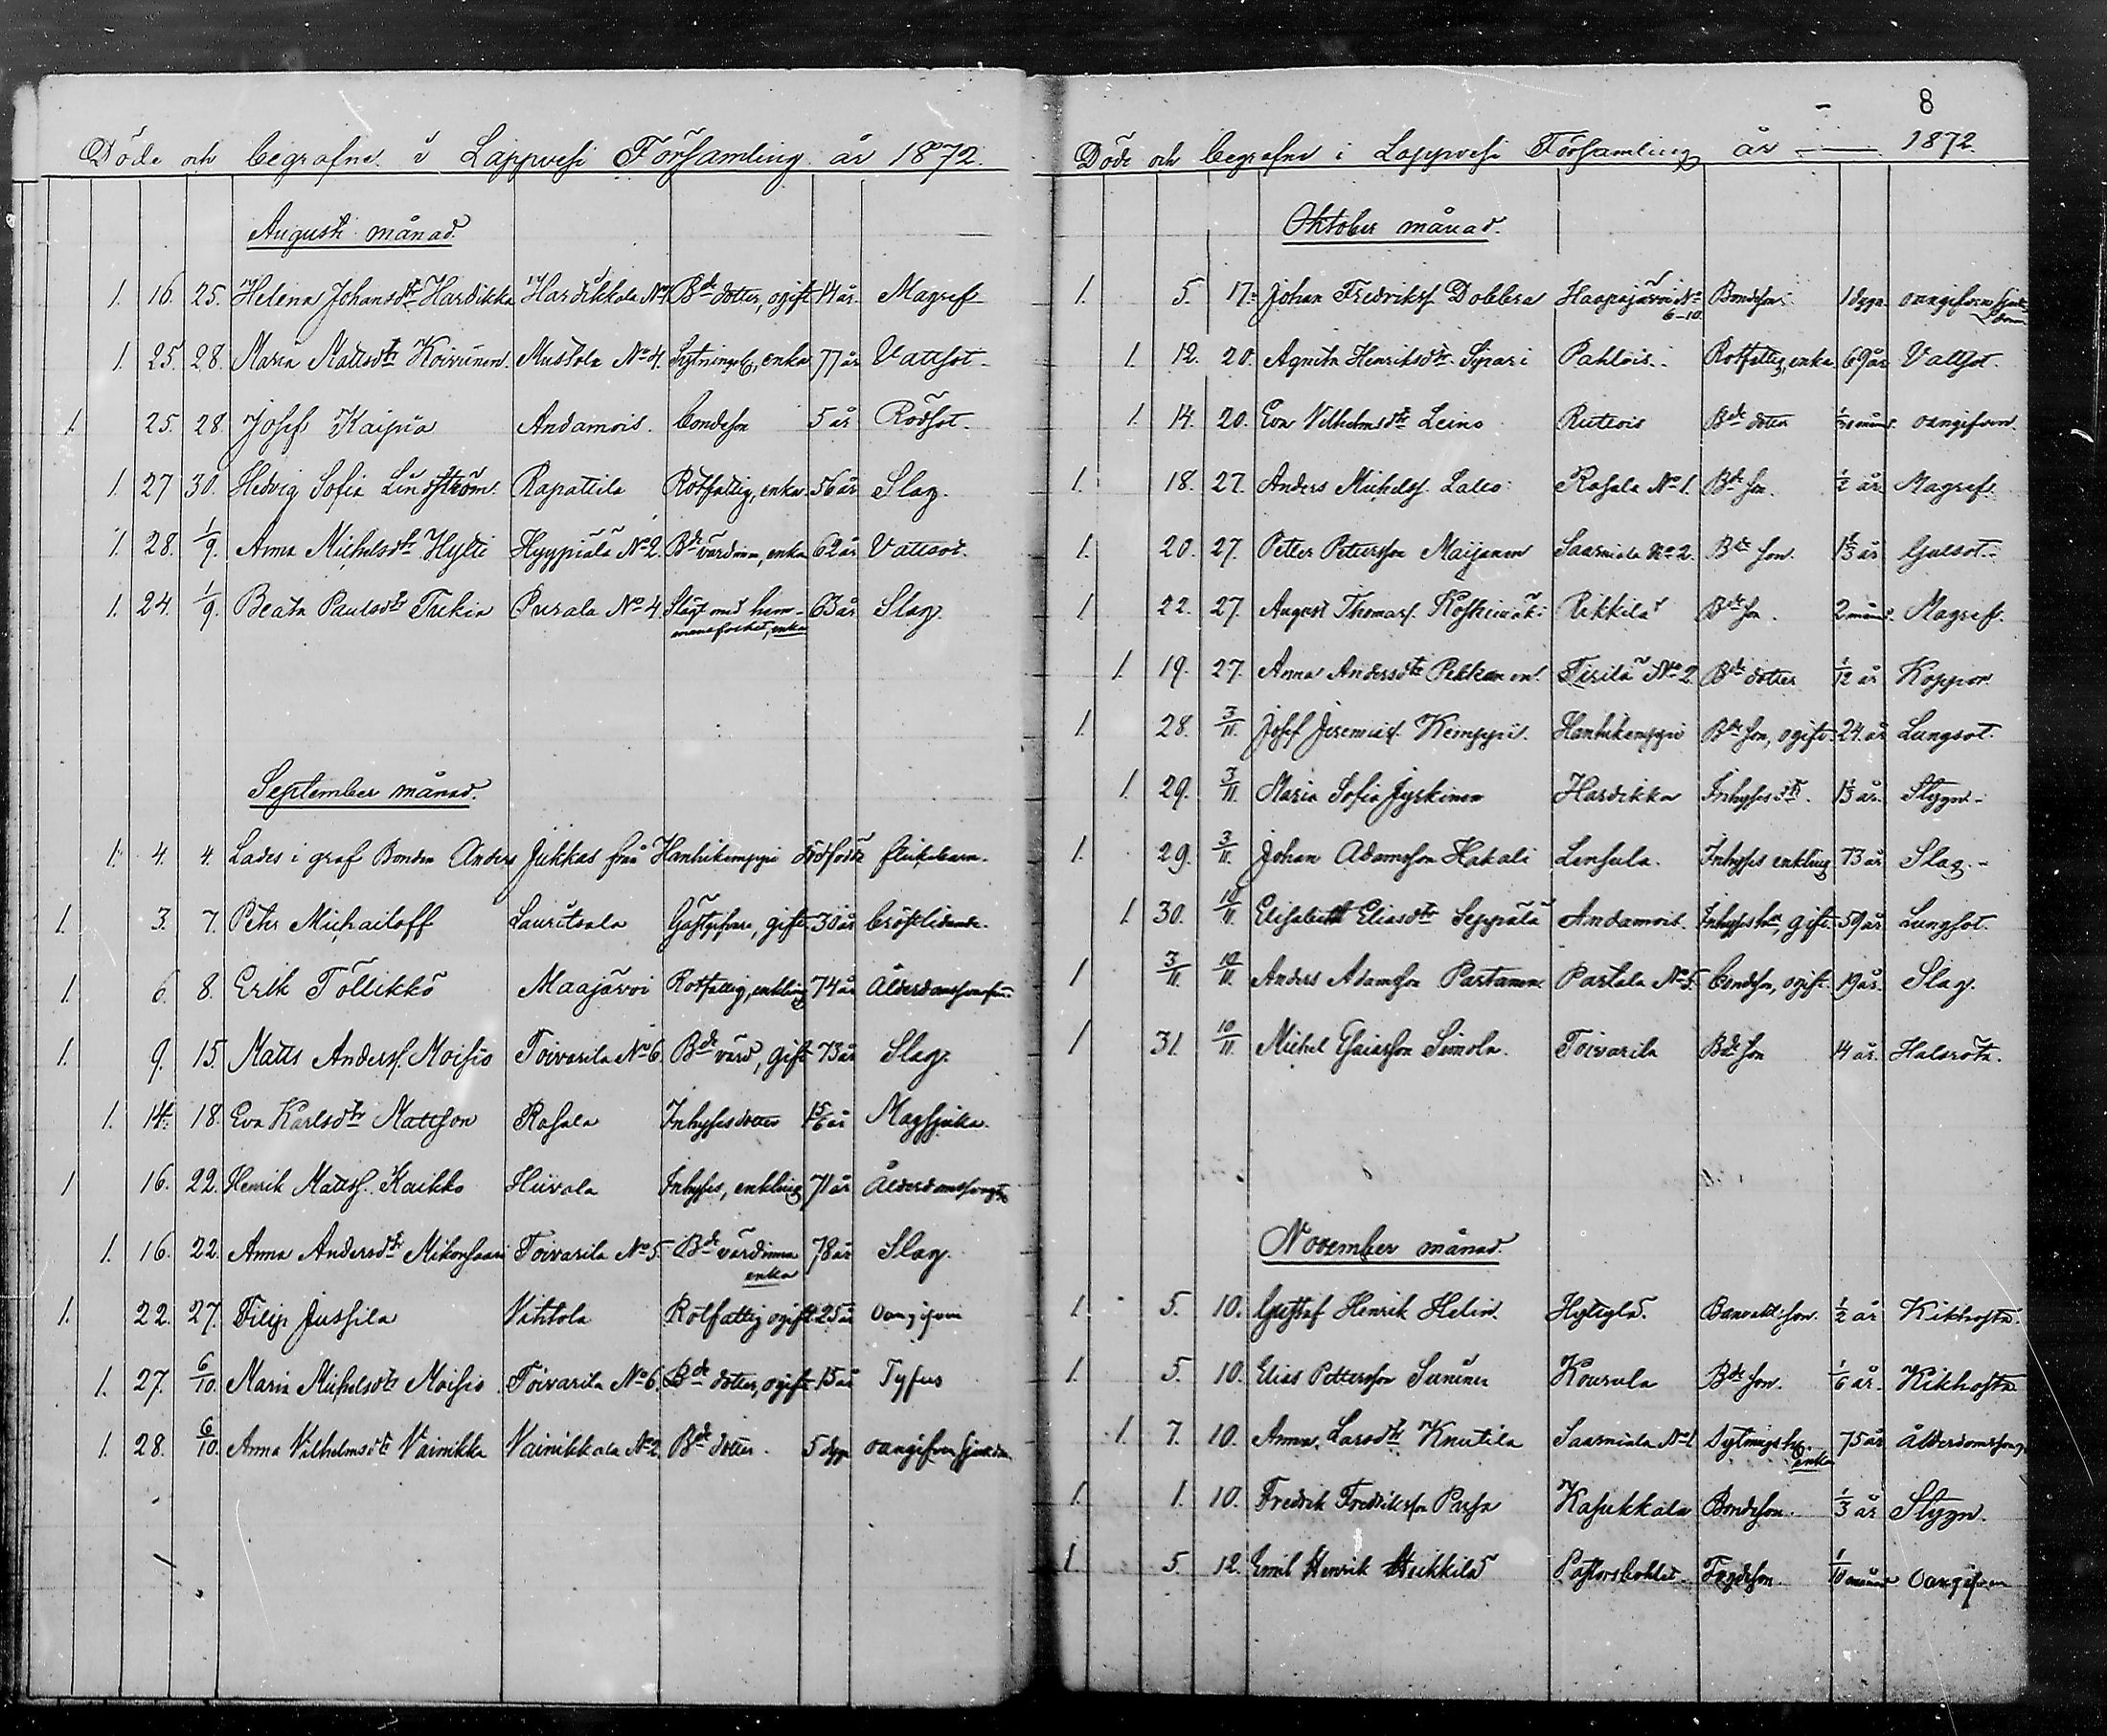 Döde och begrafne i Lappvesi Församling år 1872.
Augusti månad.
1. 16. 25. Helena Johansdtr Hardikka Hardikkala No 1 Bde dotter, ogift 14 år. Magref.
1. 25. 28. Maria Mattsdtr Koivunen. Mustola No 4. enka 77 år Vattsot.
1. 25. 28. Josef Kaipia Andamois. bondeson 5 år Rödsot.
1. 27 30. Hedvig Sofia Lindström. Rapattila Rotfattig, enka 56 år Slag.
1. 28. 1/9. Anna Michelsdtr Hylti Hyypiälä No 2. Bde värdinna, enka 62 år Vattsot.
1. 24. 1/9. Beata Paulsdtr Tukia Purala No 4. Slägt med hem- 63 år Slag.
mansfolket, enka
September månad.
1. 4. 4. Lades i graf Bonden Anders Jukkas från Hanhikemppi dödfödde flickebarn.
1. 3. 7. Peter Michailoff Lauritsala Gästgifvare, gift 30 år bröstlidande.
1. 6. 8. Erik Töllikkö Maajärvi Rotfattig, enkling 74 år
1. 9. 15. Matts Anderss. Moisio Toivarila No 6. Bde värd, gift 73 år Slag.
1. 14. 18. Eva Karlsdtr Mattson Rasala Inhysesdotter 1 5/6 år Magsjuka.
1 16. 22. Henrik Mattss. Kaikko Hiivala Inhyses, enkling 71 år
1. 16. 22. Anna Andersdtr Mikonsaari Toivarila No 5. Bde värdinna 78 år Slag.
enka
1. 22. 27. Filip Jussila Vihtola Rotfattig ogift 25 år oangifven
1. 27. 6/10. Maria Michelsdtr Moisio Toivarila No 6. Bde dotter, ogift 15 år Tyfus
1. 28. 6/10. Anna Vilhelmsdtr Vainikka Vainikkala No 2 Bde dotter. 5 dygn oangifven sjukdom.
8
Döde och begrafne i Lappvesi Församling år — 1872.
Oktober månad.
1. 5. 17. Johan Fredrikss. Dobbra Haapajärvi No Bondeson. 1 dygn oangifven sjuk-
6-10. dom
1. 12. 20. Agneta Henriksdtr Sipari Pahlois. Rotfattig, enka 69 år Vattsot.
1. 14. 20. Eva Vilhelmsdtr Leino Rutiois Bde dotter oangifven.
1. 18. 27. Anders Michelss. Lallo Rasala No 1. Bde son. 1/2 år Magref.
1. 20. 27. Petter Pettersson Maijanen Saarniala No 2. Bde son. 1 1/3 år Gulsot.
1 22. 27. August Thomass. Koskimäki Rikkilä Bde son. 2 månd. Magref.
1. 19. 27. Anna Andersdtr Pekkanen. Tirilä No 2 Bde dotter 1/12 år Koppor.
1. 28. 3/11. Josef Jeremias. Kemppi. Hanhikemppi Bde son, ogift. 24. år Lungsot.
1. 29. 3/11. Maria Sofia Jyrkinen Hardikka Inhyses dtr. 1 1/3 år. Stygn.
1. 29. 3/11. Johan Adamsson Hakali Lensula. Inhyses enkling 73 år Slag.
1. 30. 10/11. Elisabeth Eliasdtr Seppälä Andamois. gift 59 år Lungsot.
1 3/11. 10/11. Anders Adamsson Partanen. Partala No 5. bondeson, ogift 19 år. Slag.
1 31. 10/11. Michel Esaiasson Simola. Toivarila Bde son 14 år. Halsröta.
November månad.
1. 5. 10. Gustaf Henrik Helin. Hytiylä. Banvaktsson. 1/2 år Kikhosta.
1. 5. 10. Elias Pettersson Suninen Kourula Bde son. 1/6 år. Kikhosta
1 7. 10. Anna Larsdtr Knutila Saarniala No 1 75 år
enka
1. 1. 10. Fredrik Fredriksson Pussa Kasukkala Bondeson. 1/3 år Stygn.
1. 5. 12. Emil Henrik Heikkilä Pastorsbohlet Fogdeson. 1/10 månd Oangifven